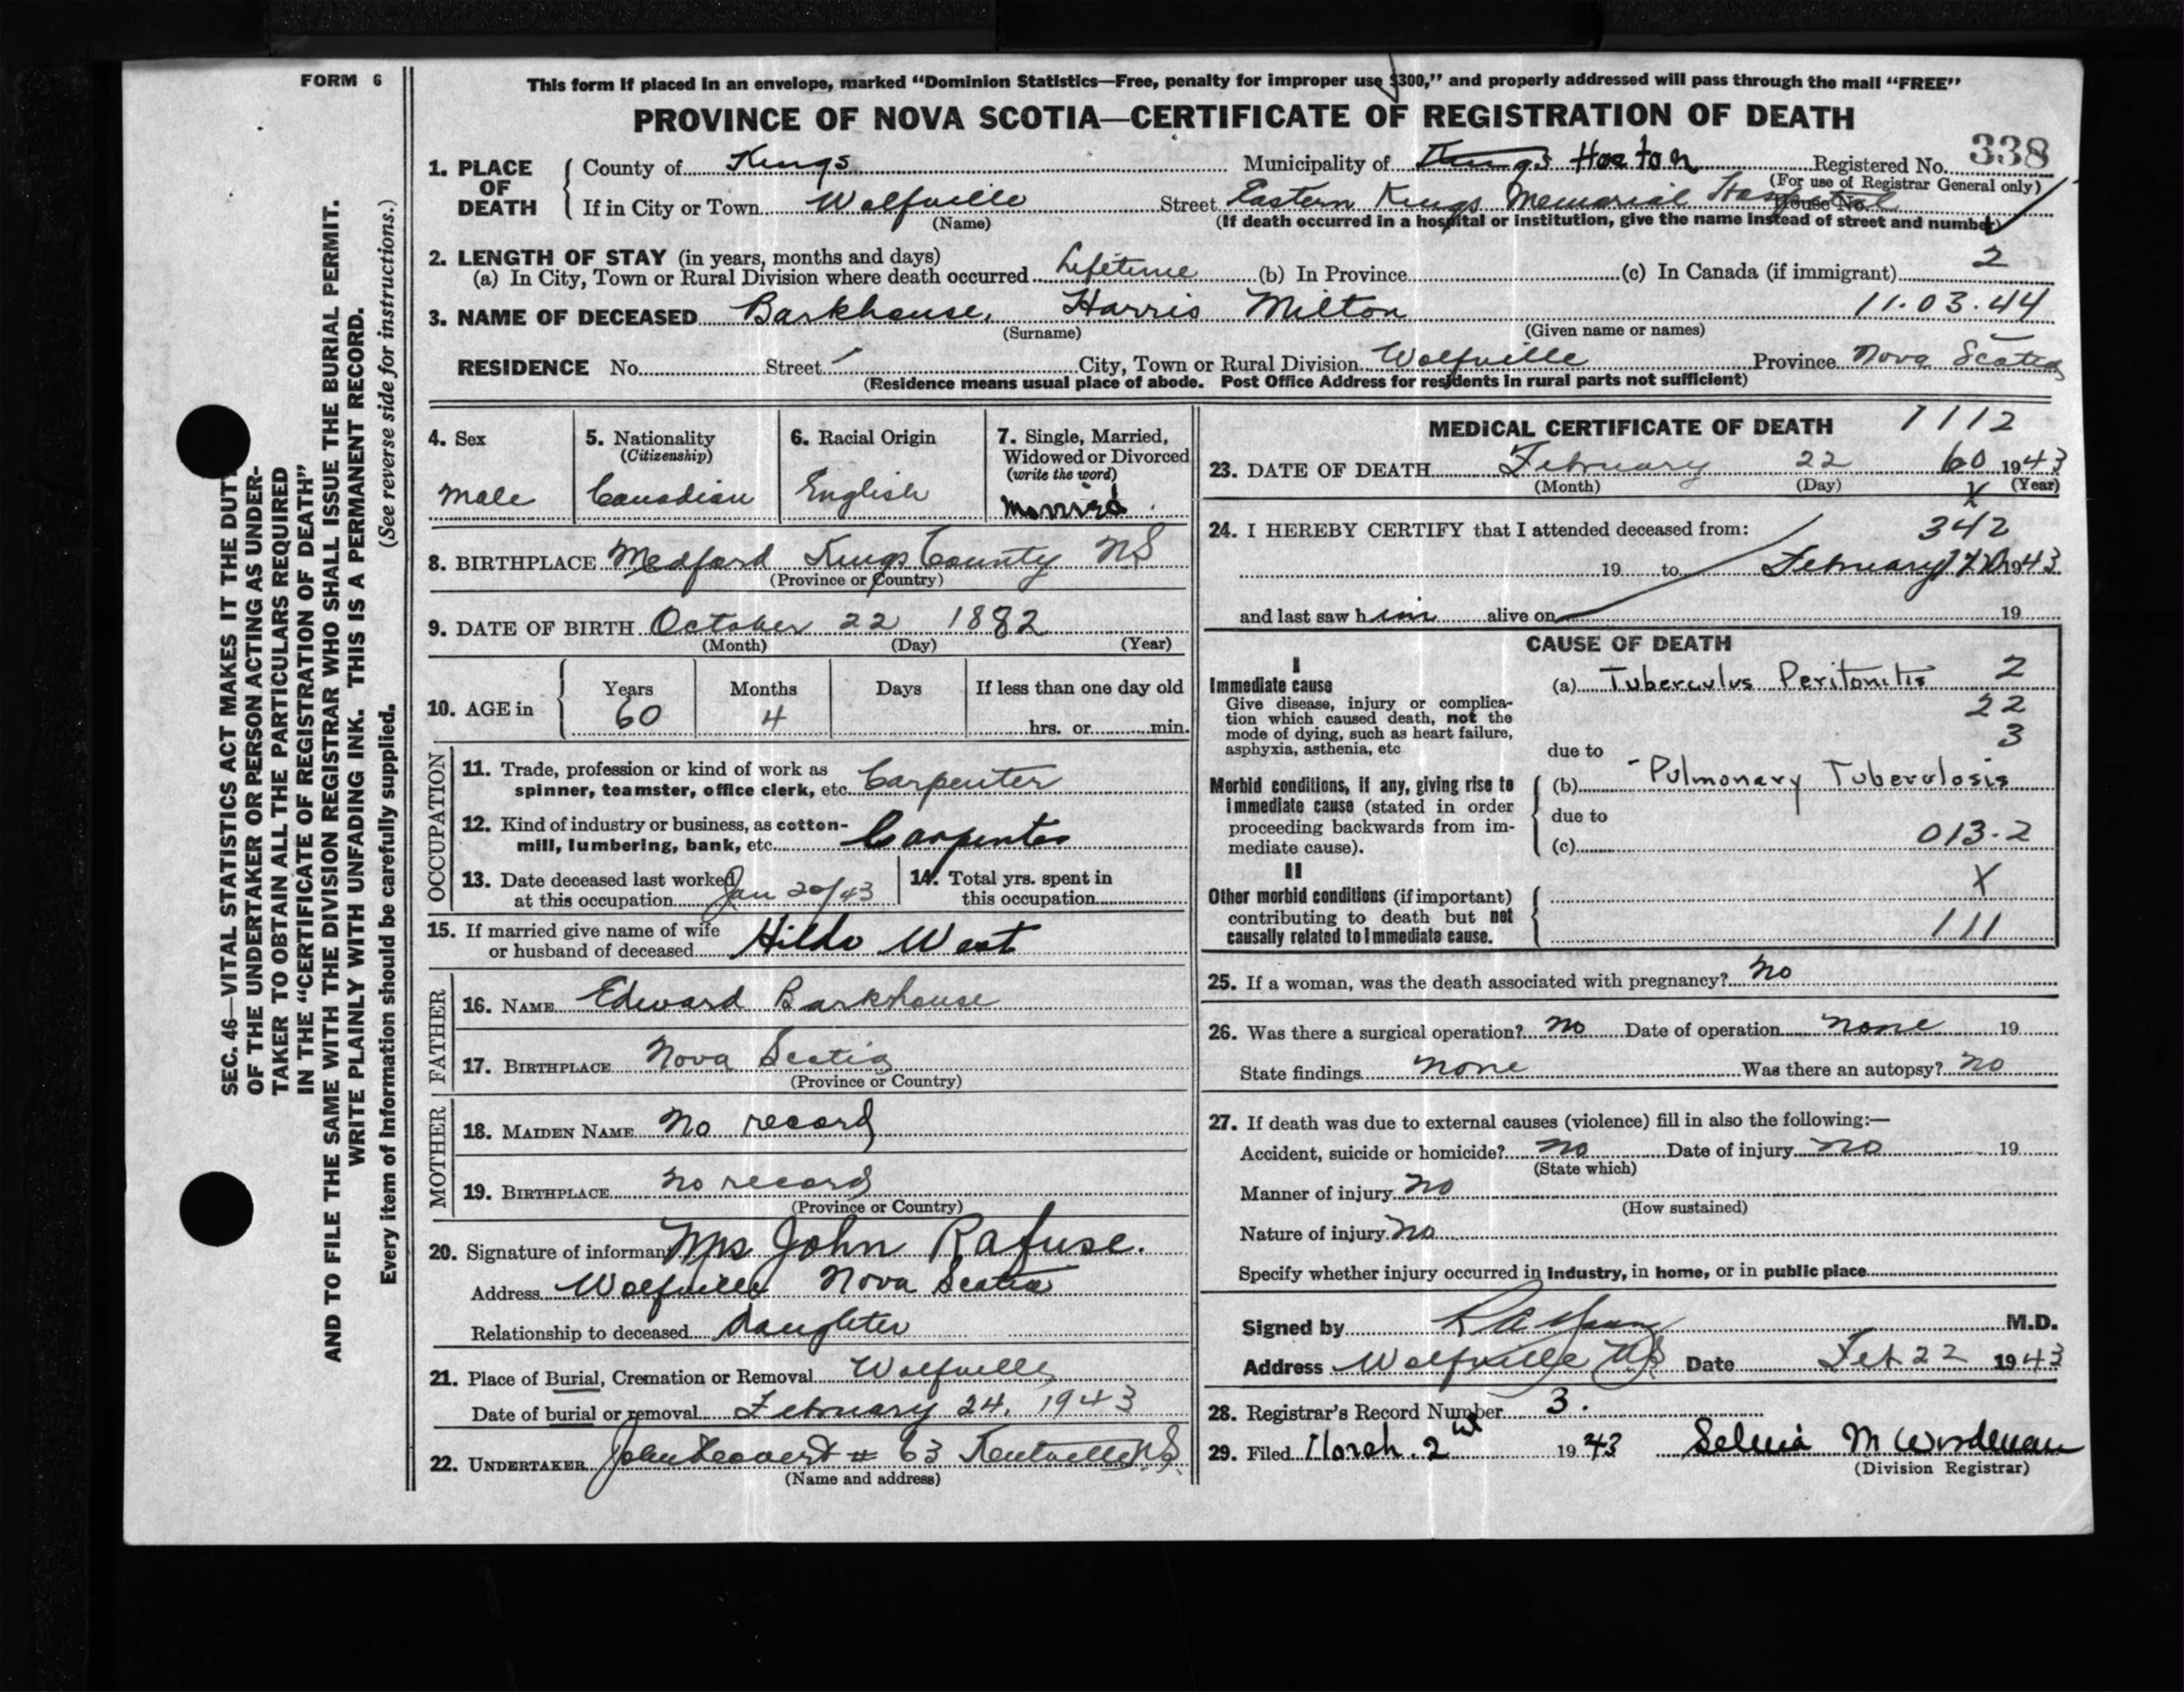 FORM 6
This form if placed in an envelope, marked "Dominion Statistics—Free, penalty for improper use $300," and properly addressed will pass through the mail "FREE"
PROVINCE OF NOVA SCOTIA—CERTIFICATE OF REGISTRATION OF DEATH
338
1. PLACE OF DEATH County of Kings Municipality of Kings Horton Registered No.
(For use of Registrar General only)
If in City or Town Wolfville Street Eastern Kings Memorial Hospital House No.
(Name) (If death occurred in a hospital or institution, give the name instead of street and number)
2. LENGTH OF STAY (in years, months and days)
(a) In City, Town or Rural Division where death occurred Lifetime (b) In Province (c) In Canada (if immigrant) 2
3. NAME OF DECEASED Barkhouse, Harris Milton 11.03.44
(Surname) (Given name or names)
RESIDENCE No. Street City, Town or Rural Division Wolfville Province Nova Scotia
(Residence means usual place of abode. Post Office Address for residents in rural parts not sufficient)
SEC. 46—VITAL STATISTICS ACT MAKES IT THE DUTY
OF THE UNDERTAKER OR PERSON ACTING AS UNDER-
TAKER TO OBTAIN ALL THE PARTICULARS REQUIRED
IN THE "CERTIFICATE OF REGISTRATION OF DEATH"
AND TO FILE THE SAME WITH THE DIVISION REGISTRAR WHO SHALL ISSUE THE BURIAL PERMIT.
WRITE PLAINLY WITH UNFADING INK. THIS IS A PERMANENT RECORD.
Every item of information should be carefully supplied. (See reverse side for instructions.)
4. Sex 5. Nationality 6. Racial Origin 7. Single, Married,
(Citizenship) Widowed or Divorced
(write the word)
Male Canadian English Married
8. BIRTHPLACE Medford Kings County NS
(Province or Country)
9. DATE OF BIRTH October 22 1882
(Month) (Day) (Year)
10. AGE in Years Months Days If less than one day old
60 4 hrs. or min.
OCCUPATION
11. Trade, profession or kind of work as
spinner, teamster, office clerk, etc. Carpenter
12. Kind of industry or business, as cotton-
mill, lumbering, bank, etc. Carpenter
13. Date deceased last worked 14. Total yrs. spent in
at this occupation Jan 20/43 this occupation
15. If married give name of wife
or husband of deceased Hilda West
FATHER
16. NAME Edward Barkhouse
17. BIRTHPLACE Nova Scotia
(Province or Country)
MOTHER
18. MAIDEN NAME No record
19. BIRTHPLACE no record
(Province or Country)
20. Signature of informant Mrs John Rafuse.
Address Wolfville Nova Scotia
Relationship to deceased Daughter
21. Place of Burial, Cremation or Removal Wolfville
Date of burial or removal February 24, 1943
22. UNDERTAKER # 63 Kentville NS
(Name and address)
MEDICAL CERTIFICATE OF DEATH 1112
23. DATE OF DEATH February 22 60 1943
(Month) (Day) (Year)
X
24. I HEREBY CERTIFY that I attended deceased from: 342
19 to February 1943
and last saw him alive on 19
CAUSE OF DEATH
I
Immediate cause (a) Tuberculus Peritonitis 2
Give disease, injury or complica- 22
tion which caused death, not the
mode of dying, such as heart failure, 3
asphyxia, asthenia, etc due to
Morbid conditions, if any, giving rise to (b) Pulmonary Tuberculosis
immediate cause (stated in order due to
proceeding backwards from im-
mediate cause). (c) 013-2
II X
Other morbid conditions (if important)
contributing to death but not
causally related to immediate cause. 111
25. If a woman, was the death associated with pregnancy? no
26. Was there a surgical operation? no Date of operation none 19
State findings none Was there an autopsy? no
27. If death was due to external causes (violence) fill in also the following:—
Accident, suicide or homicide? no Date of injury no 19
(State which)
Manner of injury no
(How sustained)
Nature of injury no
Specify whether injury occurred in industry, in home, or in public place
Signed by M.D.
Address Wolfville NS Date Feb 22 1943
28. Registrar's Record Number 3.
29. Filed March. 2 1943
(Division Registrar)